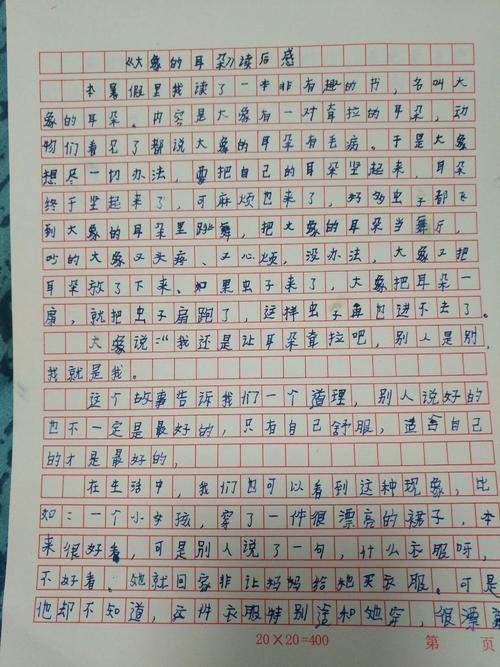 《大象的耳朵》读后感
本暑假里我读了一本非有趣的书，名叫大
象的耳朵。内容是大象有一对耷拉的耳朵，动
物们看见了都说大象的耳朵有毛病。于是大象
想尽一切办法，要把自己的耳朵竖起来，耳朵
终于竖起来了，可麻烦也来了，好多虫子都飞
到大象的耳朵里跳舞，把大象的耳朵当舞厅，
吵的大象又头疼、又心烦，没办法，大象又把
耳朵放了下来、如果虫子来了，大象把耳朵一
扇，就把虫子扇跑了，这样虫子再也进不去了。
大象说："我还是让耳朵耷拉吧，别人是别，
我就是我。
这个故事告诉我们一个道理，别人说好的
也不一定是最好的，只有自己舒服，适合自己
的才是最好的，
在生活中，我们也可以看到这种现象，比
如：一个小女孩，穿了一件很漂亮的裙子，本
来很好看，可是别人说了一句，什么衣服呀，
不好看。她就回家非让妈妈给她买衣服。可是
他却不知道，这件衣服特别适和她穿，很漂
20×20=400
第 页